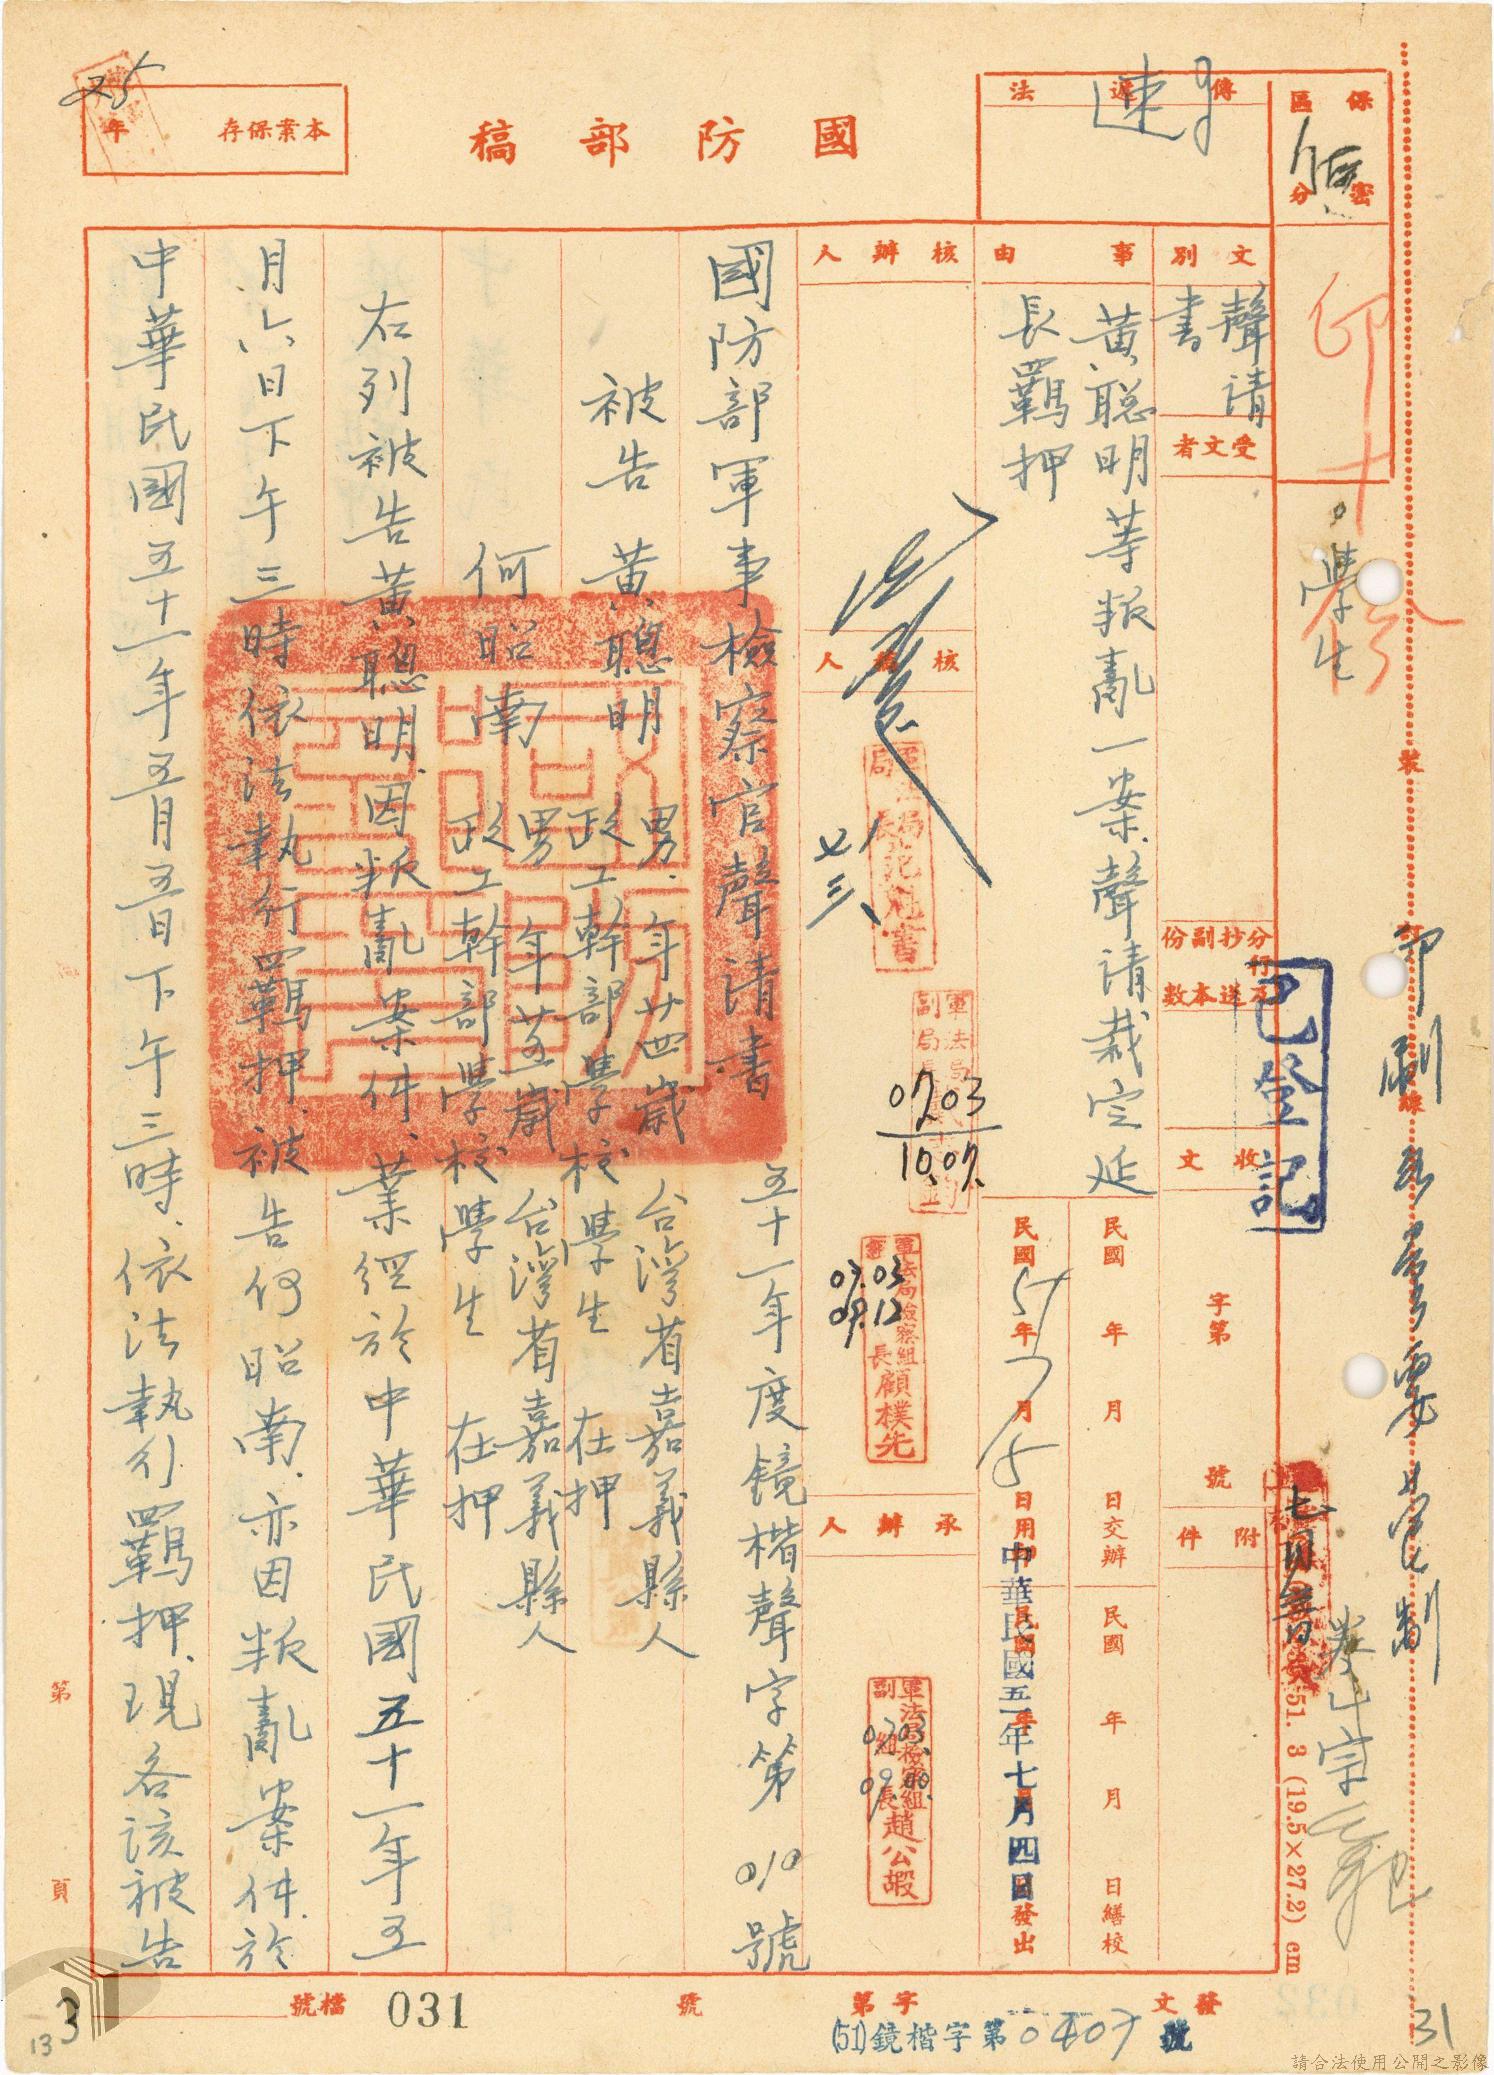 國防部稿
保密區分
傳遞法
速
本案保存年
25
文別
聲請書
受文者
事由
黃聰明等叛亂一案聲請裁定延長羈押
分行抄送副本份數
收文
字第 號
附件
已登記
民國 年 月 日交辦
民國 年 月 日繕校
民國51年7月5日用印
中華民國五一年七月四日發出
核辦人
核稿人
承辦人
07.03
10.07.
軍法局檢察組組長顧樸先
07.03
09.12
軍法局檢察組副組長趙公嘏
0703.
09.00.
國防部軍事檢察官聲請書 五十一年度鏡楷聲字第010號
被告 黃聰明 男.年廿四歲 台灣省嘉義縣人
政工幹部學校學生 在押
何昭南 男 年廿五歲 台灣省嘉義縣人
政工幹部學校學生 在押
右列被告黃聰明因叛亂案件、業經於中華民國五十一年五
月六日下午三時依法執行羈押.被告何昭南.亦因叛亂案件於
中華民國五十一年五月五日下午三時、依法執行羈押.現各該被告
學生
裝
線
51. 3 (19.5×27.2) cm
第 頁
發文 字第 號
(51)鏡楷字第0407號
檔號 031
3
13
31
請合法使用公開之影像